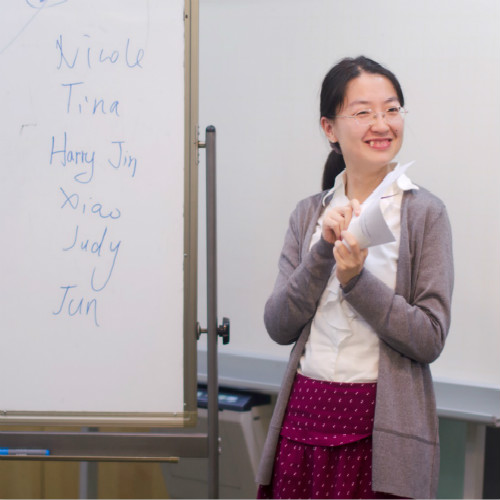 Nicole
Tina
Harry Jin
Xiao
Judy
Jun